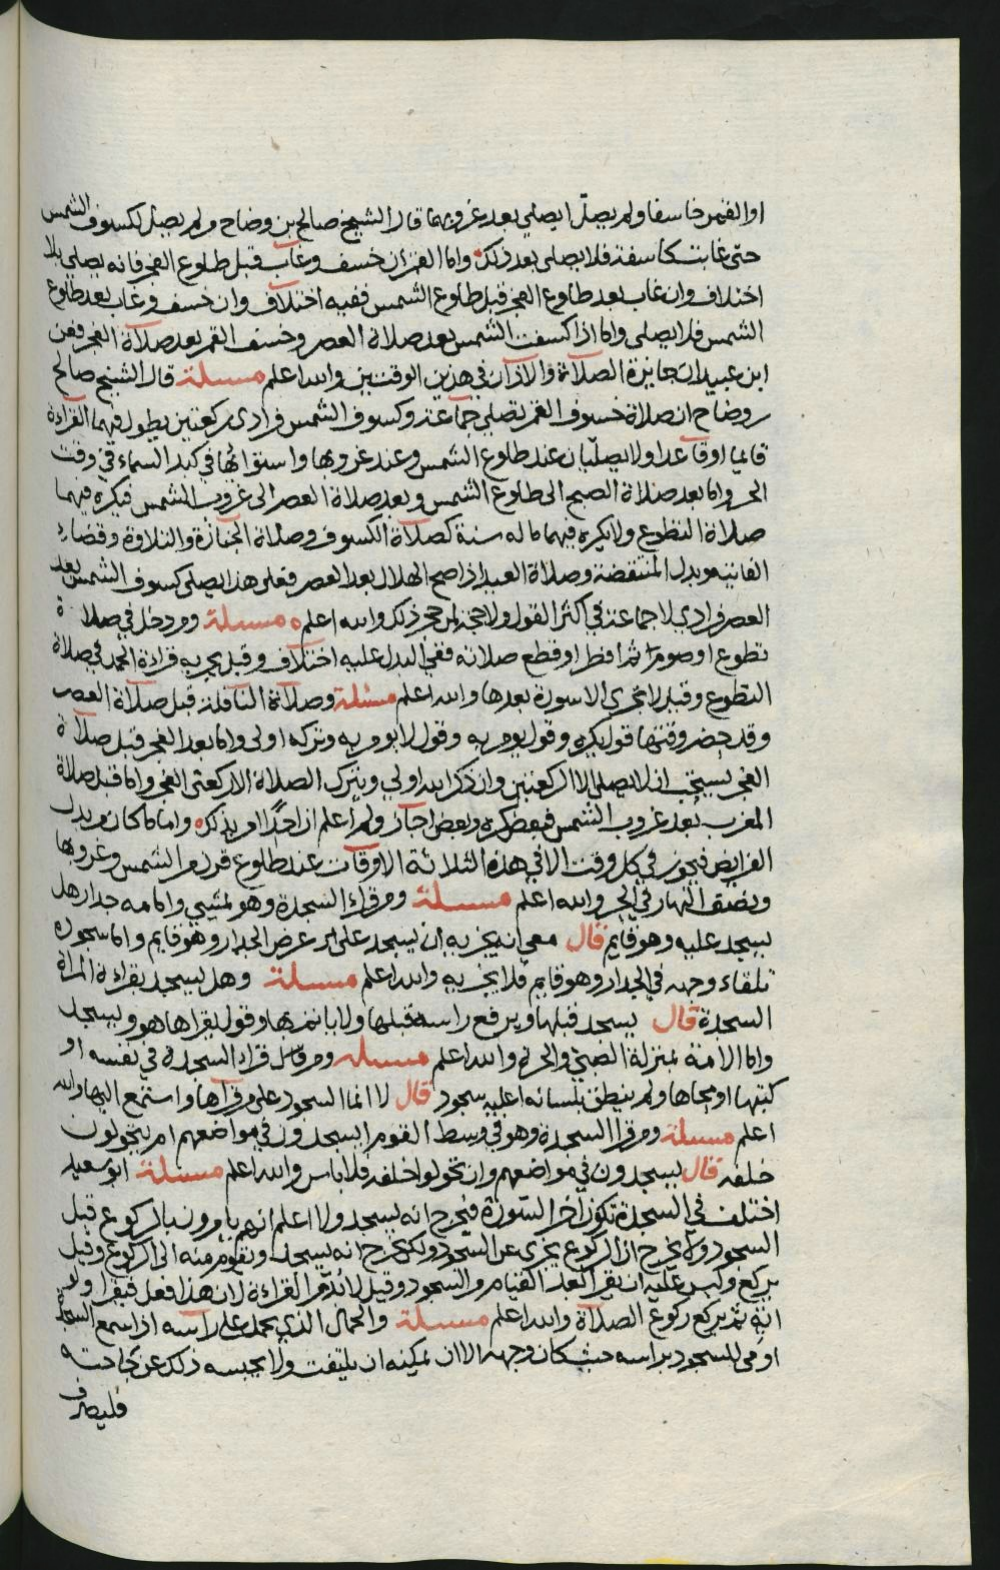 او القمر خاسفا ولم يصل ايصلي بعد غروبهما قال الشيخ صالح بن وضاح ولم يصل لكسوف الشمس
حتى غابت كاسفة فلا يصلى بعد ذلك واما القمر ان خسف وغاب قبل طلوع الفجر فانه يصلى بلا
اختلاف وان غاب بعد طلوع الفجر قبل طلوع الشمس ففيه اختلاف وان خسف وغاب بعد طلوع
الشمس فلا يصلى واما اذا كسفت الشمس بعد صلاة العصر وخسف القمر بعد صلاة الفجر فعن
ابن عبيدان جايزة الصلاة والاذان في هذين الوقتين والله اعلم مسئلة قال الشيخ صالح
بن وضاح ان صلاة خسوف القمر تصلى جماعة وكسوف الشمس فرادى ركعتين يطول فيهما القراءة
قايما او قاعدا ولا يصليان عند طلوع الشمس وعند غروبها واستوائها في كبد السماء في وقت
الحر واما بعد صلاة الصبح الى طلوع الشمس وبعد صلاة العصر الى غروب الشمس فيكره فيهما
صلاة التطوع ولا يكره فيهما ما له سنة كصلاة الكسوف وصلاة الجنازة والتلاوة وقضاء
الفائتة وبدل المنتقضة وصلاة العيد اذا صح الهلال بعد العصر فعلى هذا يصلى كسوف الشمس بعد
العصر فرادى لا جماعة في اكثر القول ولا حجة لمن حجر ذلك والله اعلم مسئلة ومن دخل في صلاة
تطوع او صوم ثم افطر او قطع صلاته ففي البدل عليه اختلاف وقيل يجزيه قراءة الحمد في صلاة
التطوع وقيل لا تجزي الا سورة بعدها والله اعلم مسئلة وصلاة النافلة قبل صلاة العصر
وقد حضر وقتها قول يكره وقول يومر به وقول لا يومر به وتركه اولى واما بعد الفجر قبل صلاة
الفجر يستحب ان لا يصلي الا الركعتين وان ذكر الله اولى ويترك الصلاة الا ركعتي الفجر واما قبل صلاة
المغرب بعد غروب الشمس فبعض كره وبعض اجاز ولم اعلم ان احدا امر بذلك واما ما كان من بدل
الفرايض فيجوز في كل وقت الا في هذه الثلاثة الاوقات عند طلوع قرن من الشمس وغروبها
ونصف النهار في الحر والله اعلم مسئلة ومن قراء السجدة وهو يمشي وامامه جدار هل
يسجد عليه وهو قايم قال معي انه يجزيه ان يسجد على عرض الجدار وهو قايم واما سجوده
تلقاء وجهه في الجدار وهو قايم فلا يجزيه والله اعلم مسئلة وهل يسجد بقراءة المراة
السجدة قال يسجد قبلها ويرفع راسه قبلها ولا ياتم بها وقول يقراها هو ويسجد
واما الامة بمنزلة الصبي والحرة والله اعلم مسئلة ومن قال قراء السجدة في نفسه او
كتبها او محاها ولم ينطق بلسانه اعليه سجود قال لا انما السجود على من قراها واستمع اليها والله
اعلم مسئلة ومن قرا السجدة وهو في وسط القوم ايسجدون في مواضعهم ام يتحولون
خلفه قال يسجدون في مواضعهم وان تحولوا خلفه فلا باس والله اعلم مسئلة ابو سعيد
اختلف في السجدة تكون اخر السورة فيخرج انه يسجد ولا اعلم انهم يامرون بالركوع قبل
السجود ولا يخرج ان الركوع يجزي عن السجود ولكن يخرج انه يسجد ويقوم منه الى الركوع وقيل
يركع وليس عليه ان يقرا بعد القيام من السجود وقيل لا بد من القراءة لان هذا فعل فيقرا ولو
اية ثم يركع ركوع الصلاة والله اعلم مسئلة والحمال الذي يحمل على راسه اذا سمع السجدة
اومى للسجود براسه حيث كان وجهه الا ان يمكنه ان يلتفت ولا يحبسه ذلك عن حاجته
فليصرف